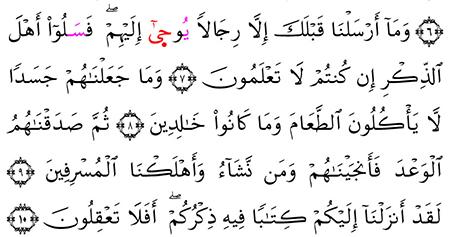 ﴿٦﴾ وَمَآ أَرْسَلْنَا قَبْلَكَ إِلَّا رِجَالاً يُوحِىٓ إِلَيْهِمْ ۖ فَسَلُوٓا۟ أَهْلَ
ٱلذِّكْرِ إِن كُنتُمْ لَا تَعْلَمُونَ ﴿٧﴾ وَمَا جَعَلْنَـٰهُمْ جَسَدًا
لَّا يَأْكُلُونَ ٱلطَّعَامَ وَمَا كَانُوا۟ خَـٰلِدِينَ ﴿٨﴾ ثُمَّ صَدَقْنَـٰهُمُ
ٱلْوَعْدَ فَأَنجَيْنَـٰهُمْ وَمَن نَّشَآءُ وَأَهْلَكْنَا ٱلْمُسْرِفِينَ ﴿٩﴾
لَقَدْ أَنزَلْنَآ إِلَيْكُمْ كِتَـٰبًا فِيهِ ذِكْرُكُمْ ۖ أَفَلَا تَعْقِلُونَ ﴿١٠﴾